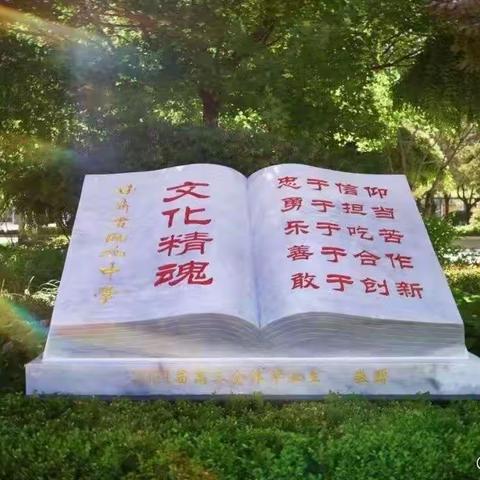 甘肃省中学
文化精魂
忠于信仰
勇于担当
乐于吃苦
善于合作
敢于创新
届高三全体毕业生 敬赠